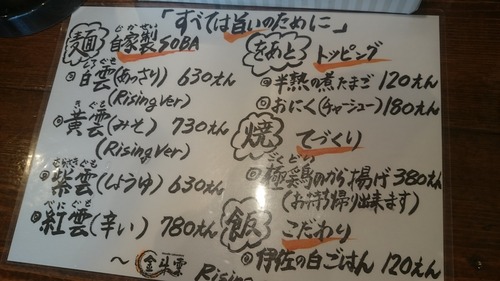 「すべては旨いのために」
麺 自家製SOBA
じかせい
◎白雲(あっさり) 630えん
(Rising Ver)
きぐも
◎黄雲(みそ) 730えん
(Rising Ver)
むらさきぐも
◎紫雲(しょうゆ) 630えん
べにぐも
◎紅雲(辛い) 780えん
〜金斗雲
Rising
をあと トッピング
◎半熟の煮たまご 120えん
◎おにく(チャーシュー) 180えん
焼 てづくり
ごくどり
◎極鶏のから揚げ 380えん
(お持ち帰り出来ます)
飯 こだわり
◎伊佐の白ごはん 120えん